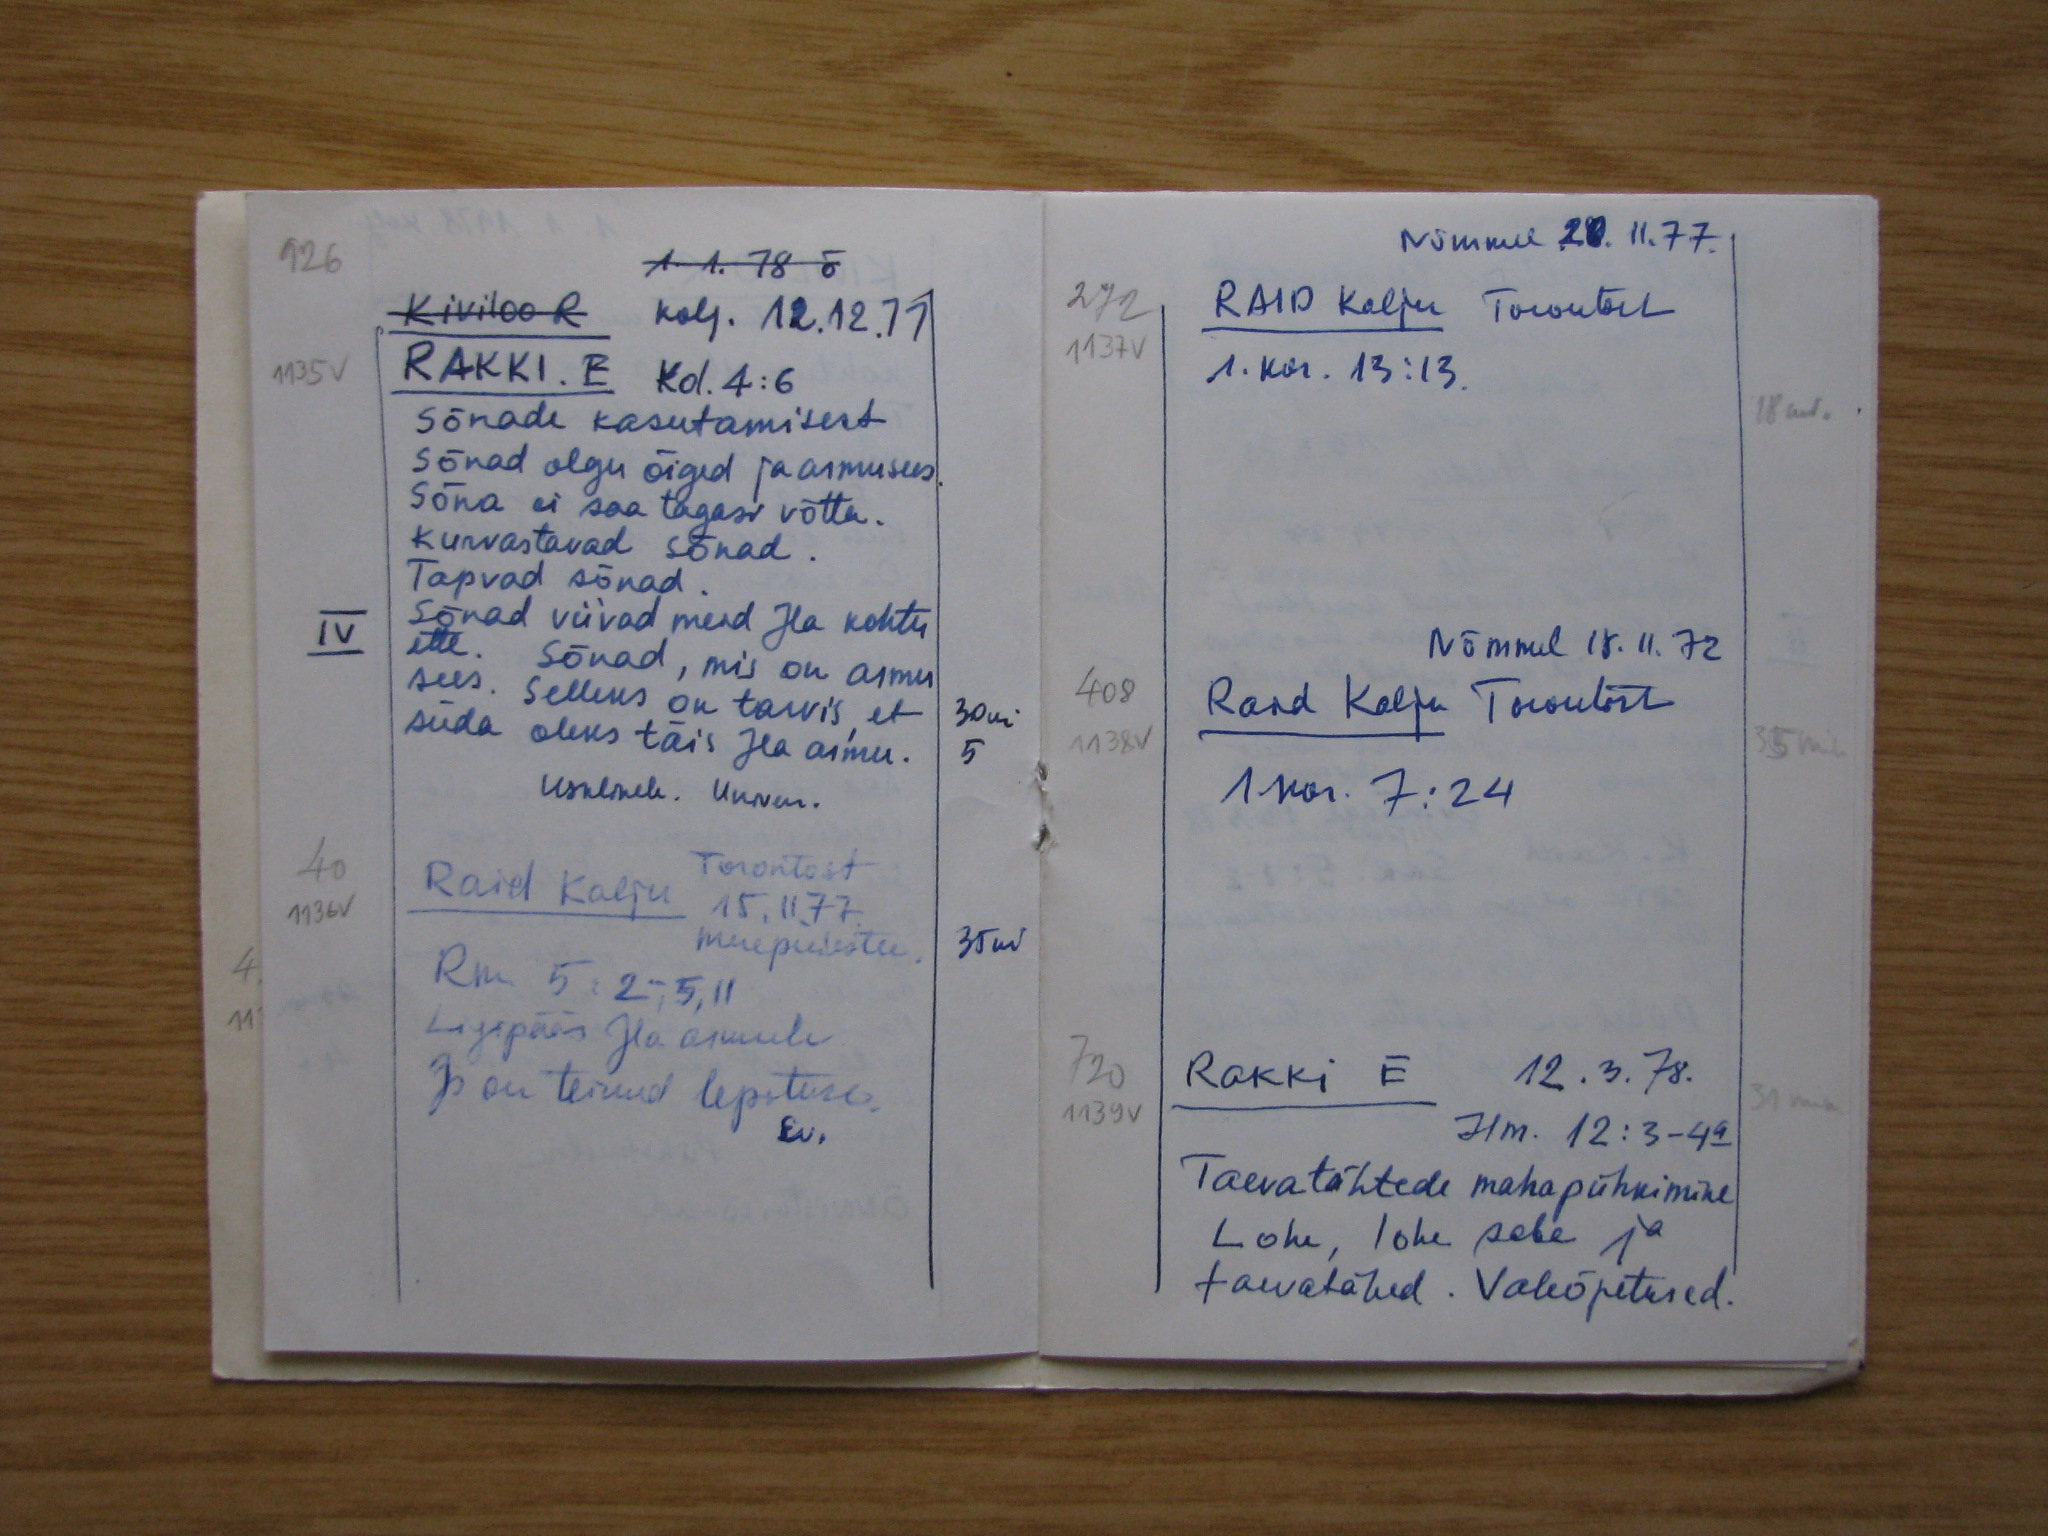 926
1.1.78 õ
Kiviloo R Kolj. 12.12.77
1135V
RAKKI. E Kol. 4:6
Sõnade kasutamisest
Sõnad olgu õiged ja armusees.
Sõna ei saa tagasi võtta.
Kurvastavad sõnad.
Tapvad sõnad.
IV
Sõnad viivad meid Jla kohtu
ette. Sõnad, mis on armu
sees. Selleks on tarvis, et 30mi
süda oleks täis Jla armu. 5
40
Raid Kalju Torontost
1136V
15.II.77.
35mi
Rm 5:2-5,11
Ligipääs Jla armule
Js on teinud lepituse.
Ev.
Nõmmel 20.II.77.
272
RAID Kalju Torontost
1137V
1. Kor. 13:13.
18 min.
Nõmmel 18.II.72
408
Raid Kalju Torontost
1138V
35 min
1 Kor. 7:24
720
Rakki E 12.3.78.
1139V
31 min
Ilm. 12:3-4a
Taevatähtede mahapühkimine
Lohe, lohe saba ja
taevatähed. Valeõpetused.